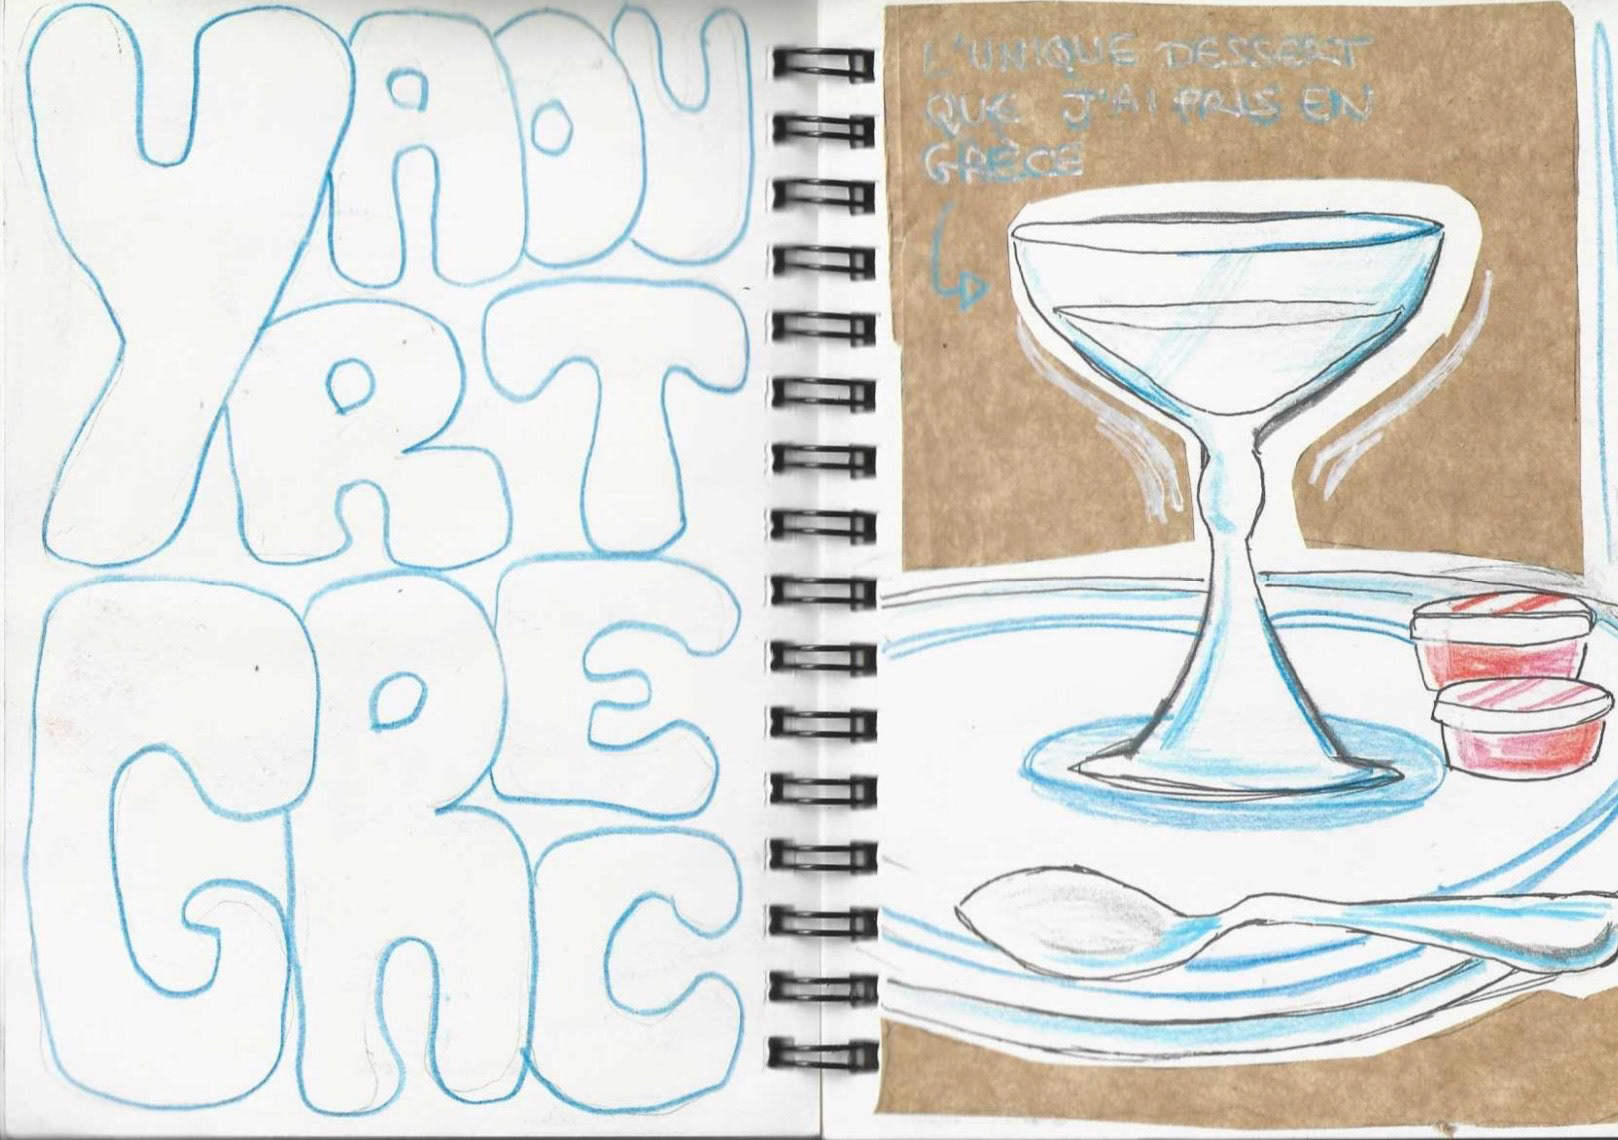 YAOU
RT
GRE
C
L'UNIQUE DESSERT
QUE J'AI PRIS EN
GRÈCE